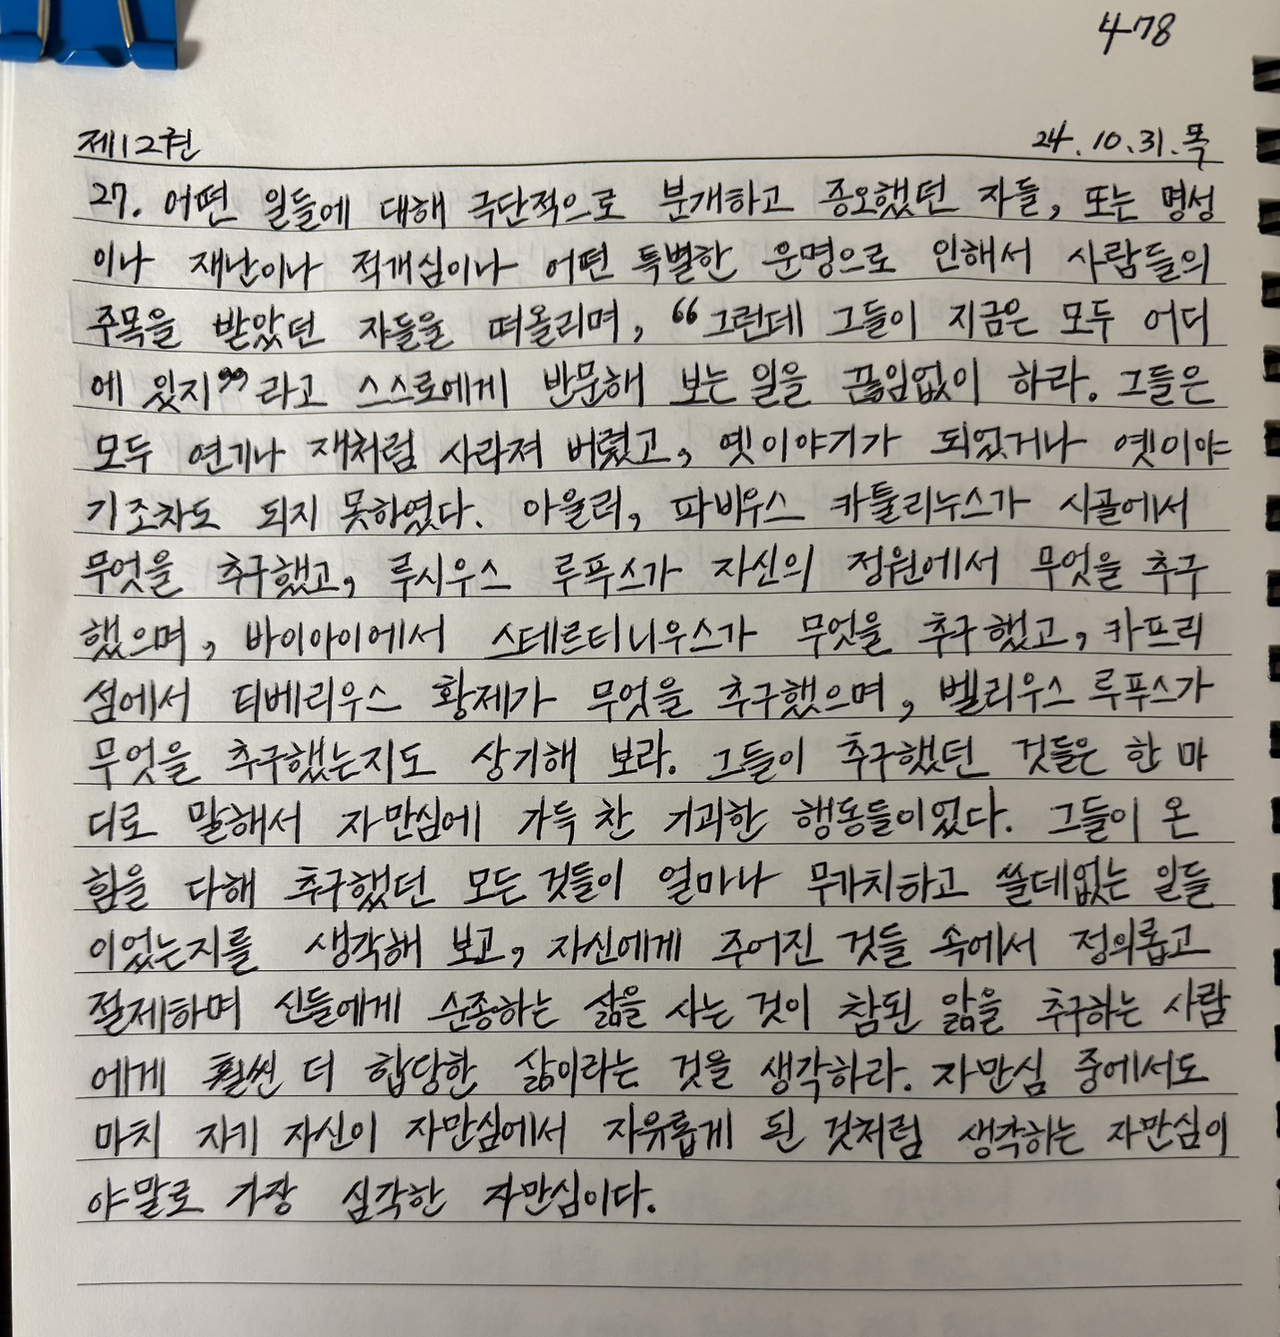 478
제12권 24.10.31.목
27. 어떤 일들에 대해 극단적으로 분개하고 증오했던 자들, 또는 명성
이나 재난이나 적개심이나 어떤 특별한 운명으로 인해서 사람들의
주목을 받았던 자들을 떠올리며, “그런데 그들이 지금은 모두 어디
에 있지”라고 스스로에게 반문해 보는 일을 끊임없이 하라. 그들은
모두 연기나 재처럼 사라져 버렸고, 옛이야기가 되었거나 옛이야
기조차도 되지 못하였다. 아울러, 파비우스 카툴리누스가 시골에서
무엇을 추구했고, 루시우스 루푸스가 자신의 정원에서 무엇을 추구
했으며, 바이아이에서 스테르티니우스가 무엇을 추구했고, 카프리
섬에서 티베리우스 황제가 무엇을 추구했으며, 벨리우스 루푸스가
무엇을 추구했는지도 상기해 보라. 그들이 추구했던 것들은 한 마
디로 말해서 자만심에 가득 찬 거과한 행동들이었다. 그들이 온
힘을 다해 추구했던 모든 것들이 얼마나 무가치하고 쓸데없는 일들
이었는지를 생각해 보고, 자신에게 주어진 것들 속에서 정의롭고
절제하며 신들에게 순종하는 삶을 사는 것이 참된 앎을 추구하는 사람
에게 훨씬 더 합당한 삶이라는 것을 생각하라. 자만심 중에서도
마치 자기 자신이 자만심에서 자유롭게 된 것처럼 생각하는 자만심이
야말로 가장 심각한 자만심이다.